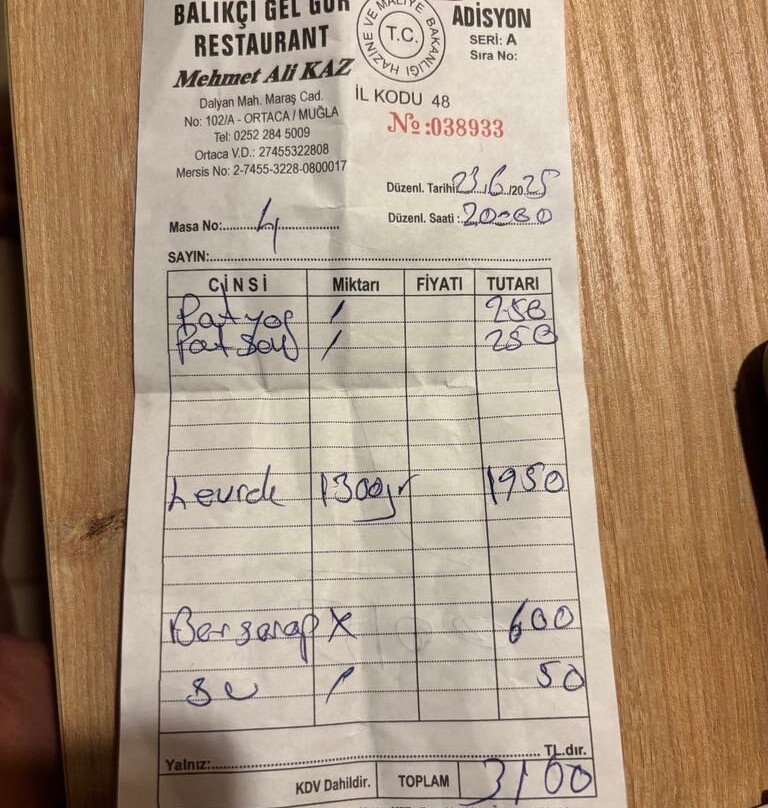 BALIKÇI GEL GÖR
RESTAURANT
Mehmet Ali KAZ
Dalyan Mah. Maraş Cad.
No: 102/A - ORTACA / MUĞLA
Tel: 0252 284 5009
Ortaca V.D.: 27455322808
Mersis No: 2-7455-3228-0800017
T.C. HAZİNE VE MALİYE BAKANLIĞI
ADİSYON
SERİ: A
Sıra No:
İL KODU 48
No:038933
Düzenl. Tarihi 23.6./2025
Düzenl. Saati : 20-30
Masa No: 4
SAYIN:
CİNSİ Miktarı FİYATI TUTARI
Pat yog / 250
Pat 250
Levrek 1300gr 1950
Ber şarap X 600
su / 50
Yalnız: TL.dır.
KDV Dahildir. TOPLAM 3100